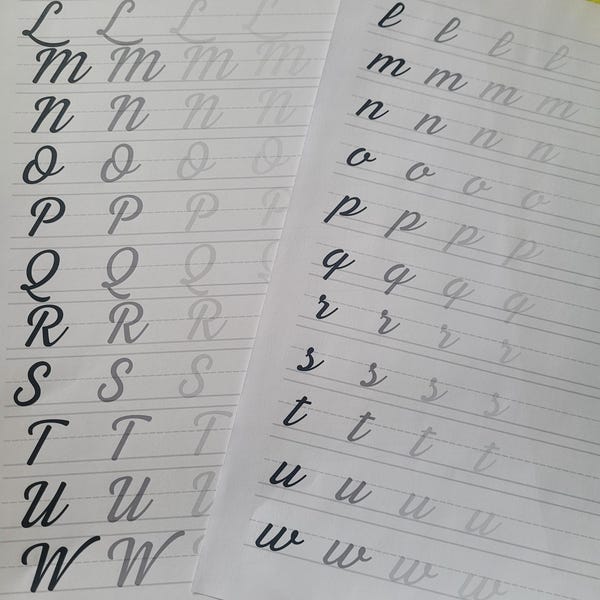 L L L L
M M M M
N N N N
O O O O
P P P P
Q Q Q
R R R
S S S
T T T
U U U
W W
e e e e
m m m m
n n n n
o o o o
p p p p
q q q q
r r r r
s s s s
t t t t
u u u u
w w w w